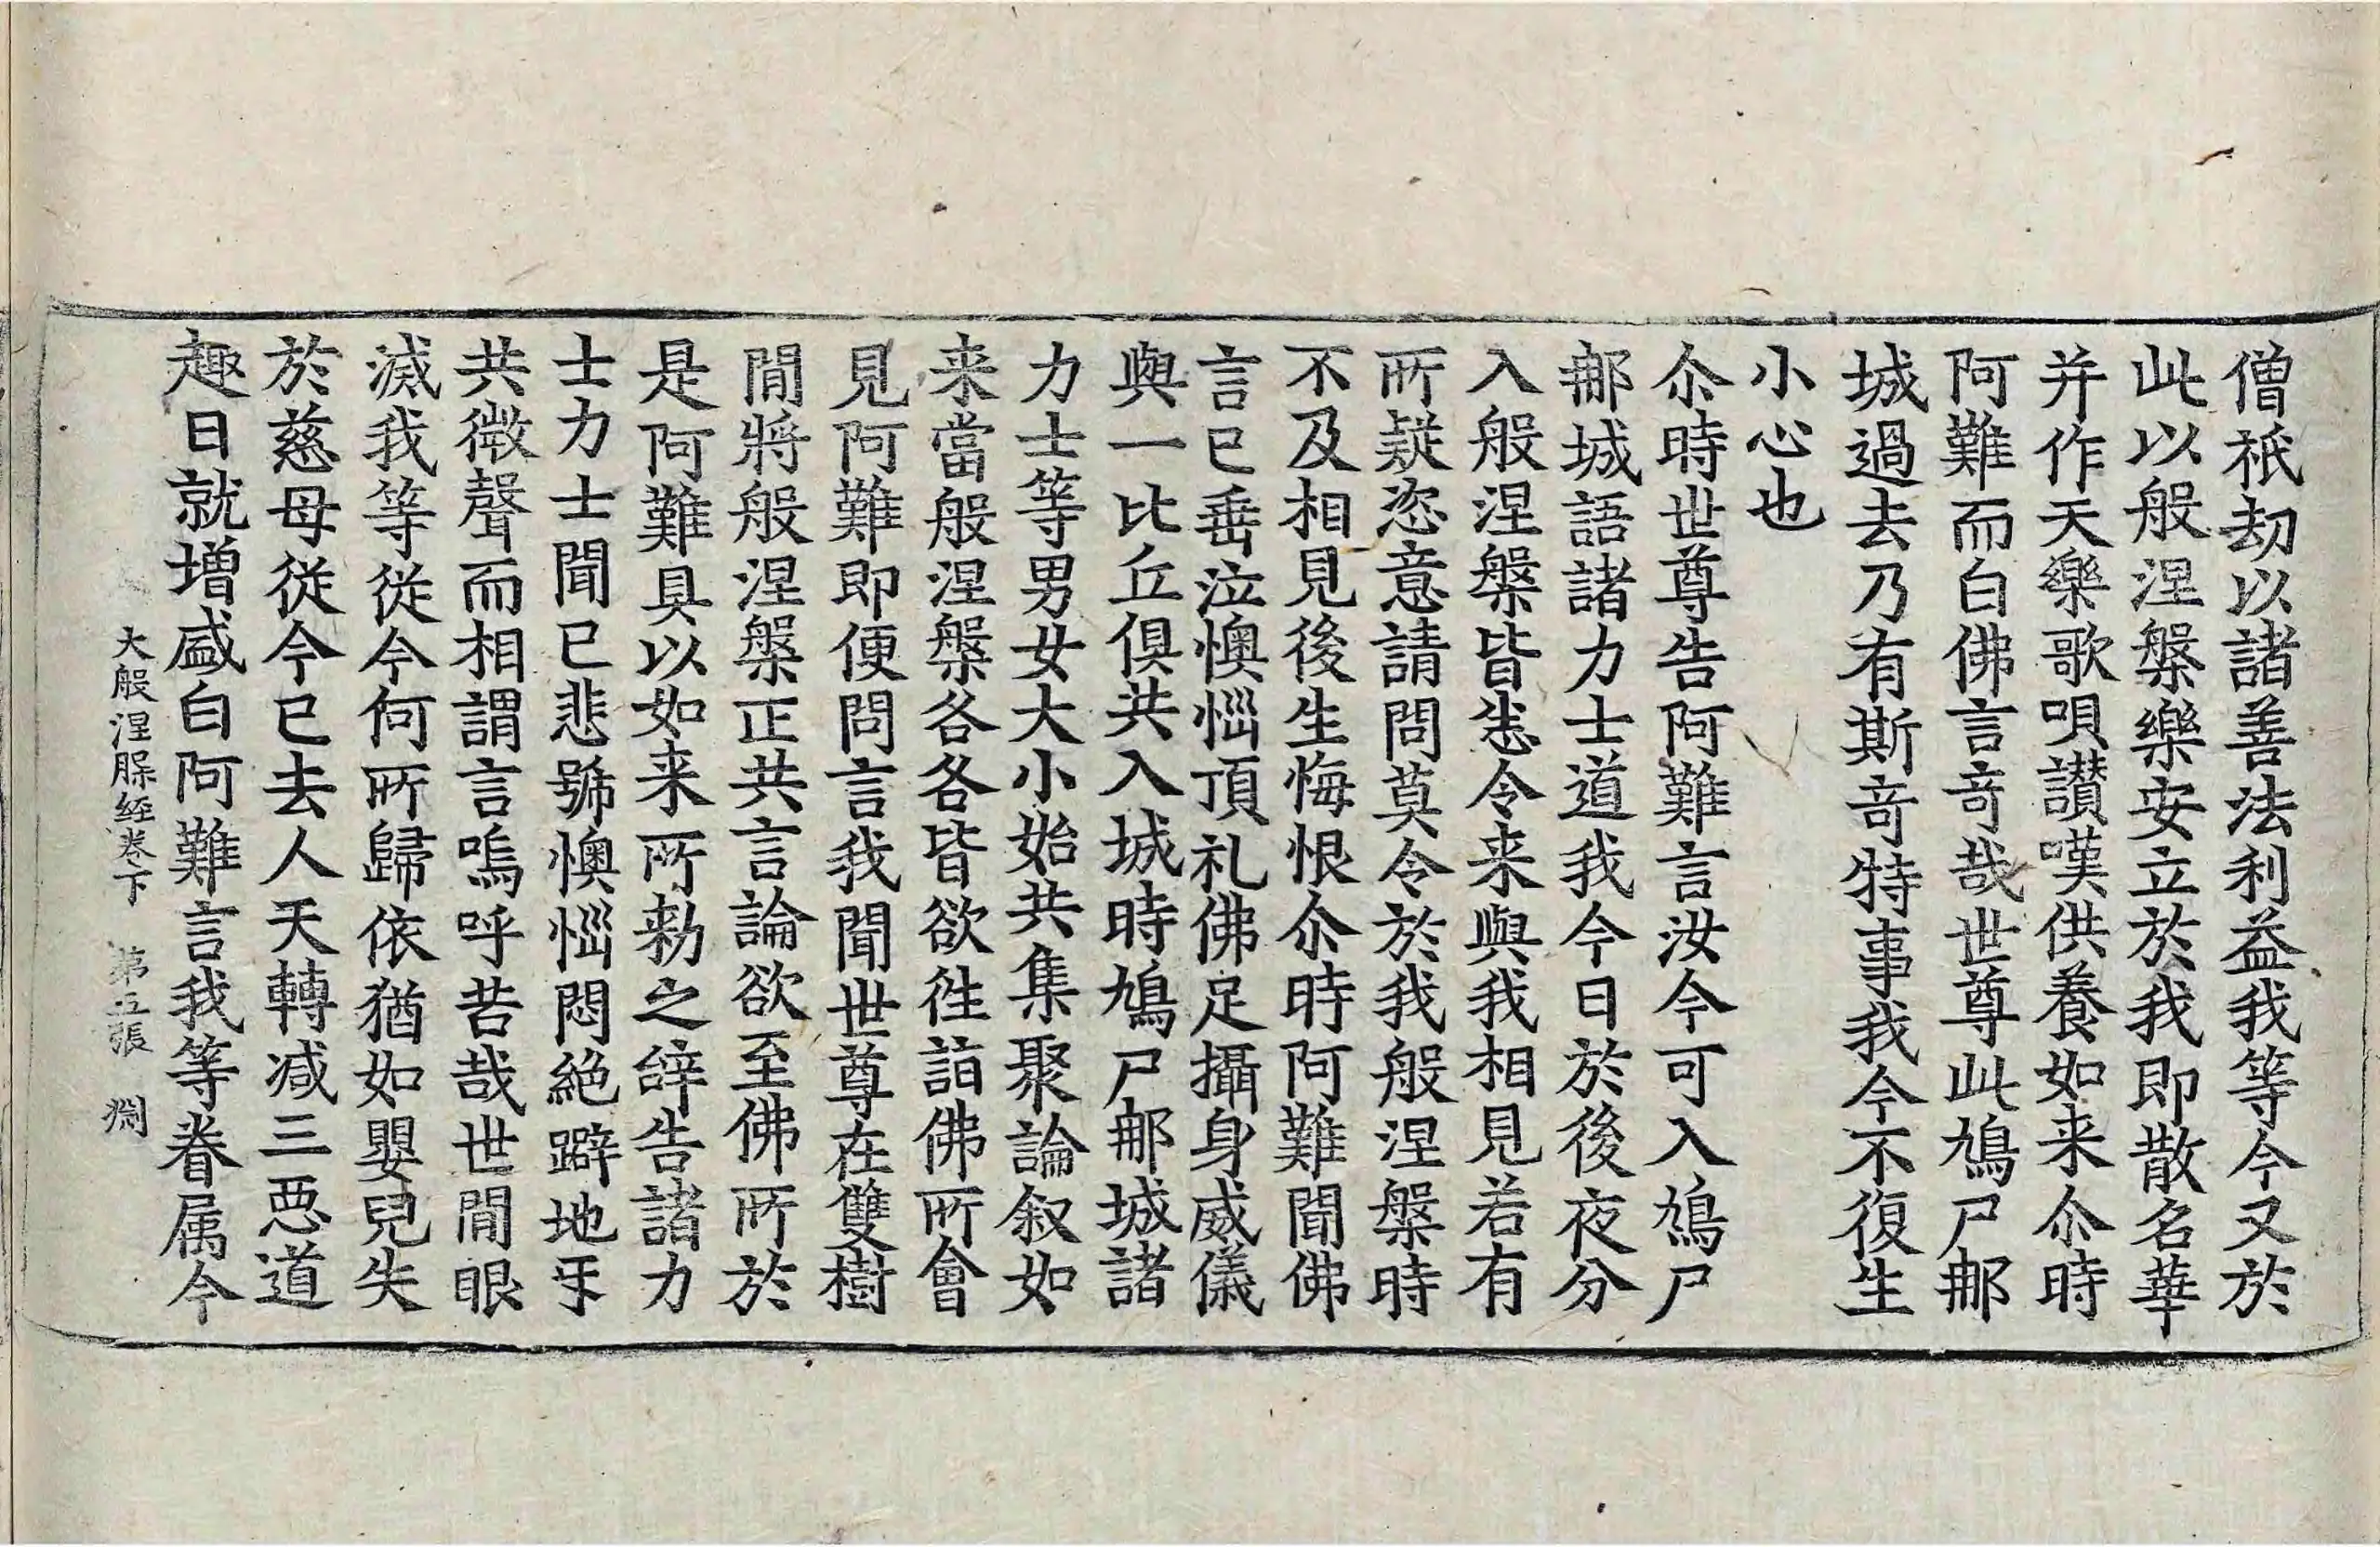 僧祇劫以諸善法利益我等今又於
此以般涅槃樂安立於我即散名華
并作天樂歌唄讃嘆供養如来尒時
阿難而白佛言奇哉世尊此鳩尸那
城過去乃有斯奇特事我今不復生
小心也
尒時世尊告阿難言汝今可入鳩尸
那城語諸力士道我今日於後夜分
入般涅槃皆悉令来與我相見若有
所疑恣意請問莫令於我般涅槃時
不及相見後生悔恨尒時阿難聞佛
言已垂泣懊惱頂礼佛足攝身威儀
與一比丘俱共入城時鳩尸那城諸
力士等男女大小始共集聚論叙如
来當般涅槃各各皆欲徃詣佛所會
見阿難即便問言我聞世尊在雙樹
間將般涅槃正共言論欲至佛所於
是阿難具以如来所勑之辝告諸力
士力士聞已悲號懊惱悶絕躃地㸦
共微聲而相謂言嗚呼苦哉世間眼
滅我等從今何所歸依猶如嬰兒失
於慈母從今已去人天轉减三惡道
趣日就增盛白阿難言我等眷属今
大般涅槃經卷下 第五張 渊